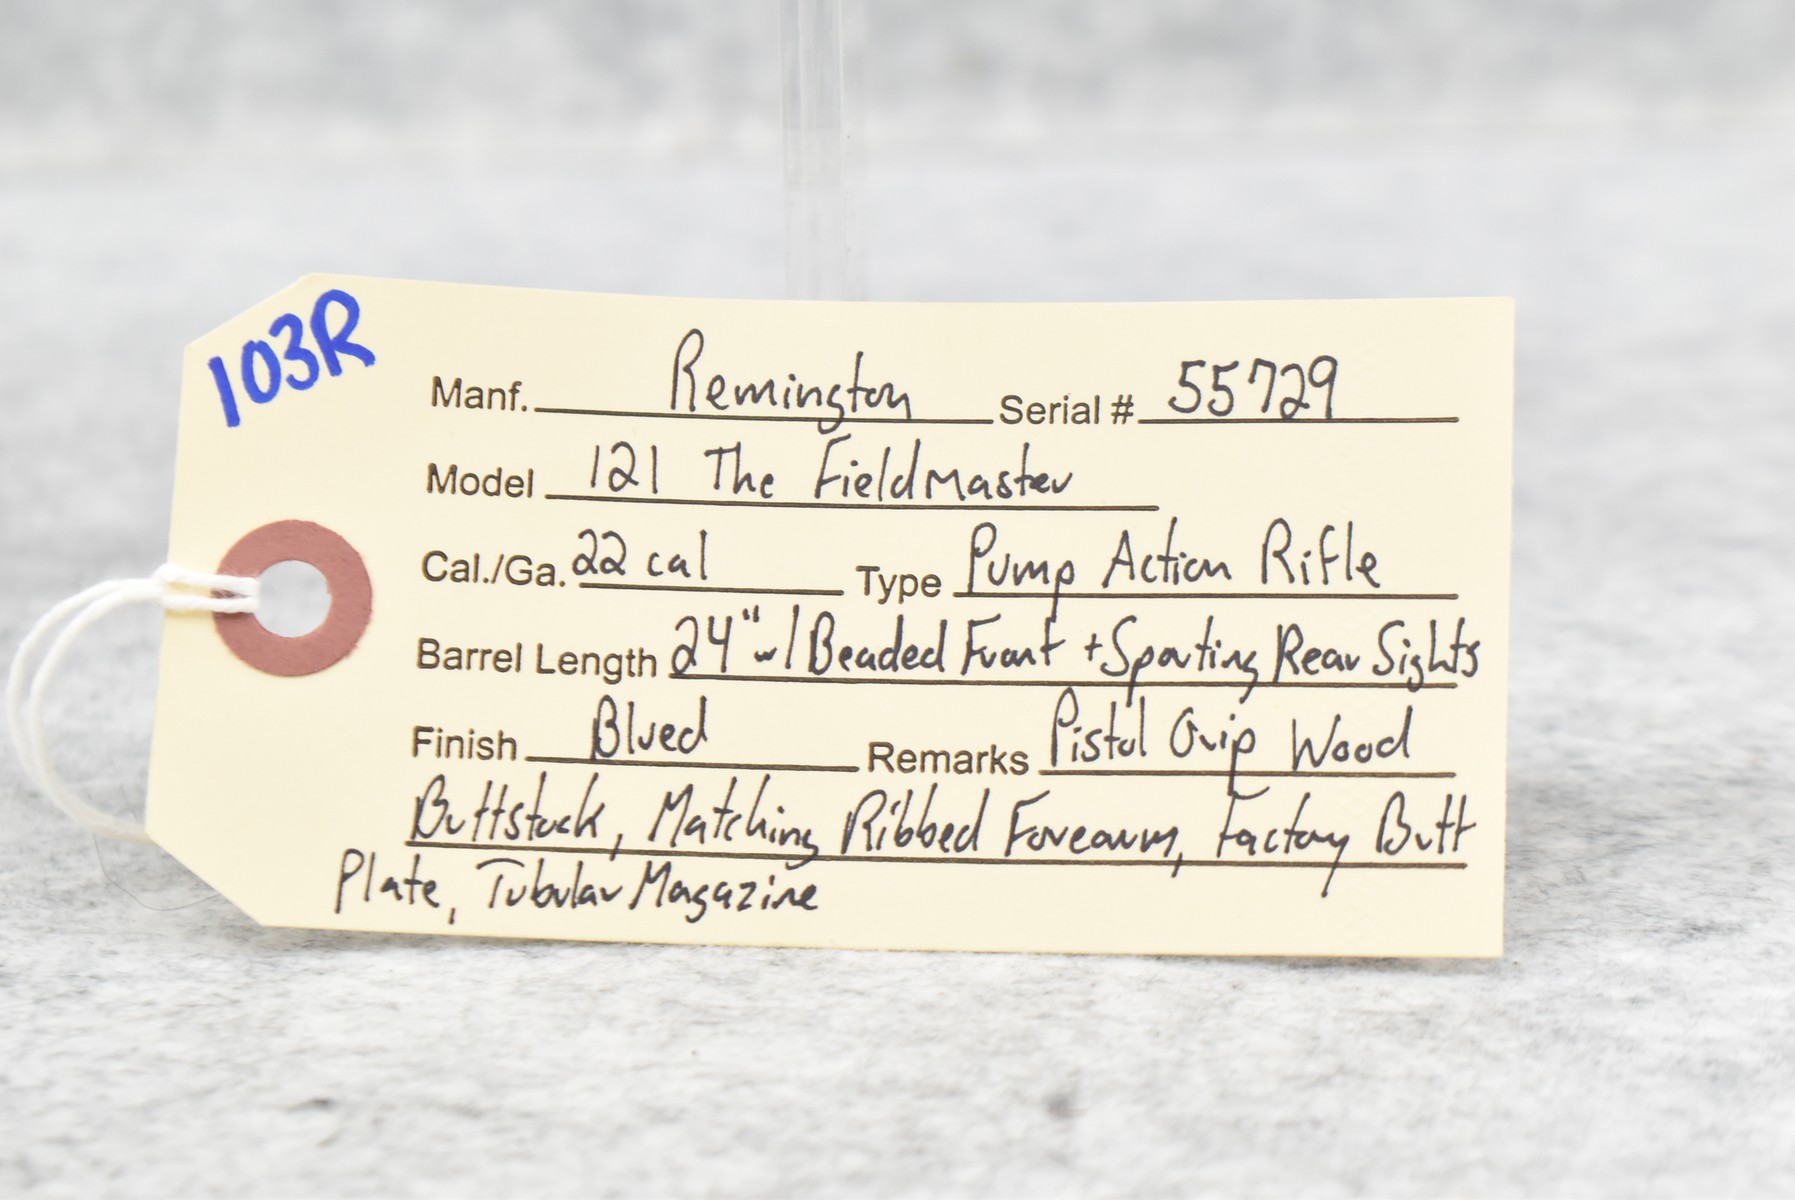 103R
Manf. Remington Serial # 55729
Model 121 The Fieldmaster
Cal./Ga. 22 cal Type Pump Action Rifle
Barrel Length 24" w/ Beaded Front + Sporting Rear Sights
Finish Blued Remarks Pistol Grip Wood
Buttstock, Matching Ribbed Forearm, Factory Butt
Plate, Tubular Magazine